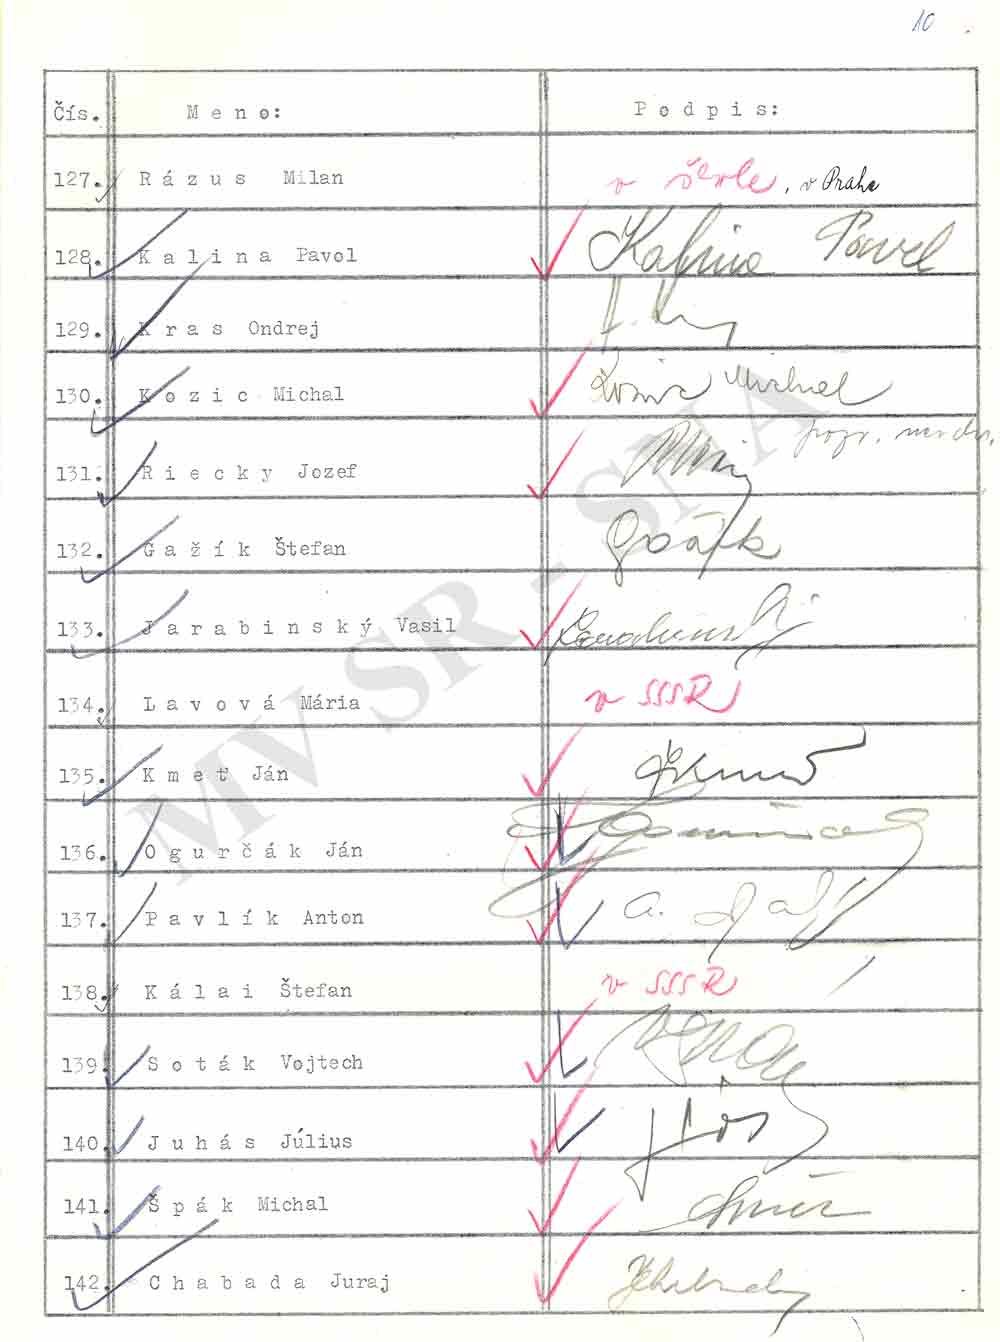 10
Čís. Meno: Podpis:
127. Rázus Milan v škole, v Prahe
128. Kalina Pavol Kalina Pavel
129. Kras Ondrej
130. Kozic Michal Kozic Michal
131. Riecky Jozef
132. Gažík Štefan Gažík
133. Jarabinský Vasil
134. Lavová Mária v SSSR
135. Kmeť Ján
136. Ogurčák Ján
137. Pavlík Anton
138. Kálai Štefan v SSSR
139. Soták Vojtech
140. Juhás Július
141. Špák Michal
142. Chabada Juraj
MV SR - SNA